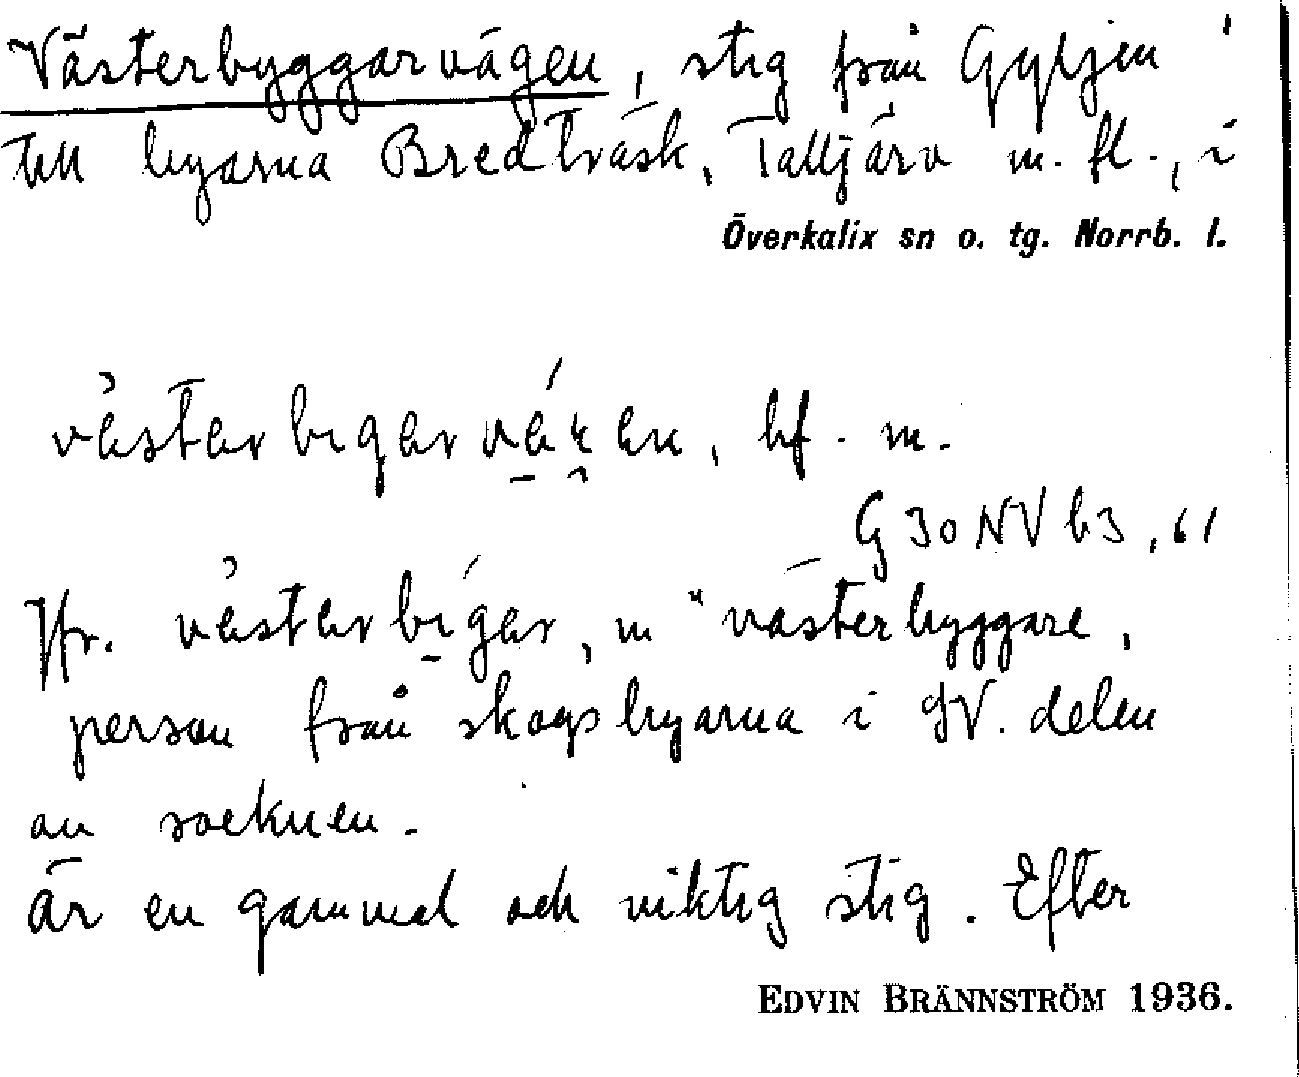 Västerbyggarvägen, stig från Gyljen i
till byarna Bredträsk, Talljärv m. fl., i
Överkalix sn o. tg. Norrb. l.
bf. m.
G 30 NV b3, 61
Jfr. m "västerbyggare,
person från skogsbyarna i SV. delen
av socknen.
Är en gammal och viktig stig. Efter
EDVIN BRÄNNSTRÖM 1936.